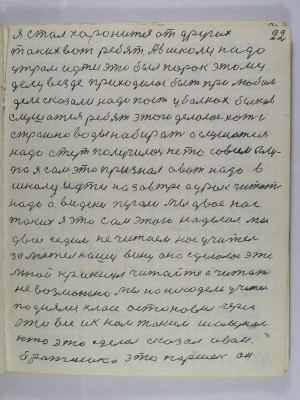 22
я стал хоронится от других
таких вот ребят. А в школу надо
утром идти это был порок этому
делу везде приходилос быт при любом
деле сказали надо поит у балках быков
слушатся ребят этого делалос хот и
страшно воды набират а слушатся
надо стут получилос не то совсем глу-
по я сам это признал а вот надо в
школу идти на завтра а урок читат
надо а видеки пугали мы двое нас
таких я это сам этого наделал мы
двое седим не читаем нас учител
заметил нашу вину ано сделалос это
мной крикнул читайте а читат
невозможно мы на месте учител
поднял клас остановил через
это все их нам таким
кто это сделал сказал
братишка это паршок он